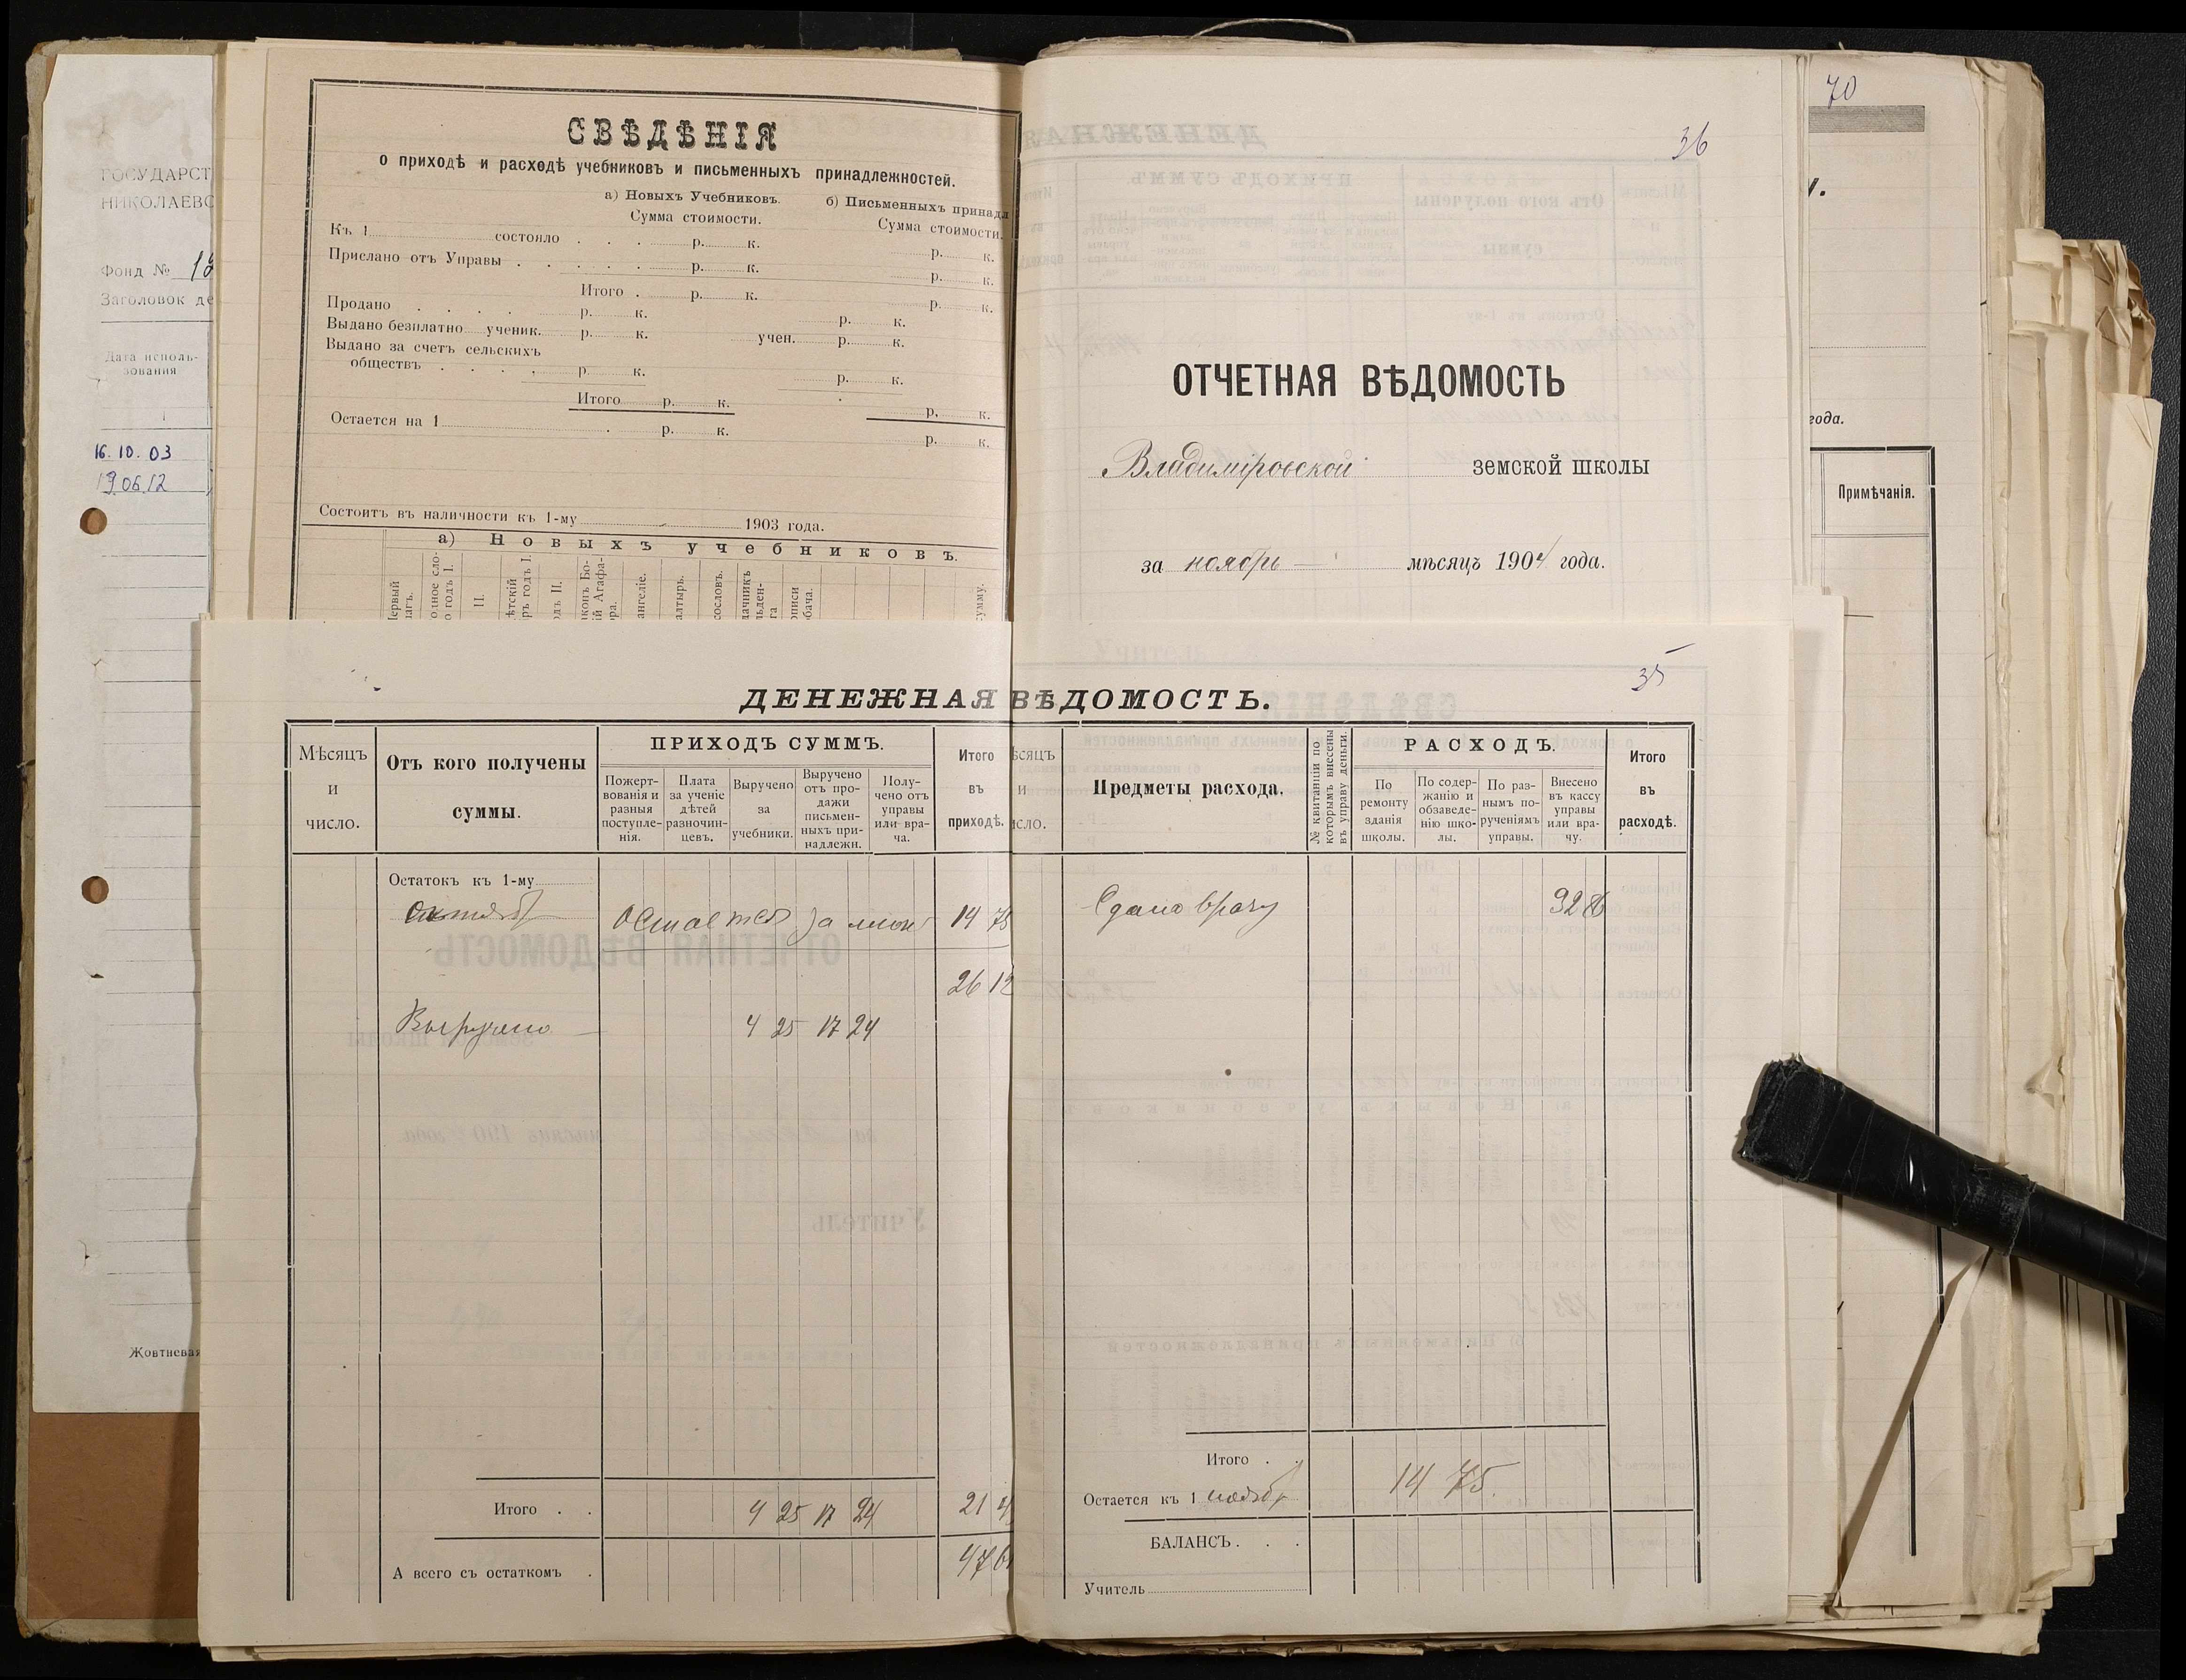 ГОСУДАРСТ
НИКОЛАЕВС
Фонд №
Заголовок де
Дата исполь-
зования
16.10.03
19.06.12
Жовтневая
СВѢДѢНІЯ
о приходѣ и расходѣ учебниковъ и письменныхъ принадлежностей.
а) Новыхъ Учебниковъ.
б) Письменныхъ принадл
Сумма стоимости.
Сумма стоимости.
Къ 1 состояло . . . р. к.
р. к.
Прислано отъ Управы . . . . . . р. к.
р. к.
Итого . р. к.
р. к.
Продано . . . . р. к.
р. к.
Выдано безплатно ученик. р. к.
учен. р. к.
Выдано за счетъ сельскихъ
обществъ . . . . р. к.
р. к.
Итого р. к.
р. к.
Остается на 1 . р. к.
р. к.
Состоитъ въ наличности къ 1-му 1903 года.
а) Новыхъ учебниковъ.
36
ОТЧЕТНАЯ ВѢДОМОСТЬ
Владиміровской земской школы
за ноябрь мѣсяцъ 1904 года.
70
года.
Примѣчанія.
35
ДЕНЕЖНАЯ ВѢДОМОСТЬ.
Мѣсяцъ
и
число.
Отъ кого получены
суммы.
ПРИХОДЪ СУММЪ.
Пожерт-
вованія и
разныя
поступле-
нія.
Плата
за ученіе
дѣтей
разночин-
цевъ.
Выручено
за
учебники.
Выручено
отъ про-
дажи
письмен-
ныхъ при-
надлежн.
Полу-
чено отъ
управы
или вра-
ча.
Итого
въ
приходѣ.
ѣсяцъ
и
исло.
Предметы расхода.
№ квитанціи по
которымъ внесены
въ управу деньги.
РАСХОДЪ.
По
ремонту
зданія
школы.
По содер-
жанію и
обзаведе-
нію шко-
лы.
По раз-
нымъ по-
рученіямъ
управы.
Внесено
въ кассу
управы
или вра-
чу.
Итого
въ
расходѣ.
Остатокъ къ 1-му
октябр
Остается за
14 75
26 12
Выручено 4 25 17 24
Сдано врачу
Итого . . 4 25 17 24
21 4
А всего съ остаткомъ .
47 6
Итого . .
Остается къ 1 ноябр 14 75.
БАЛАНСЪ. . .
Учитель